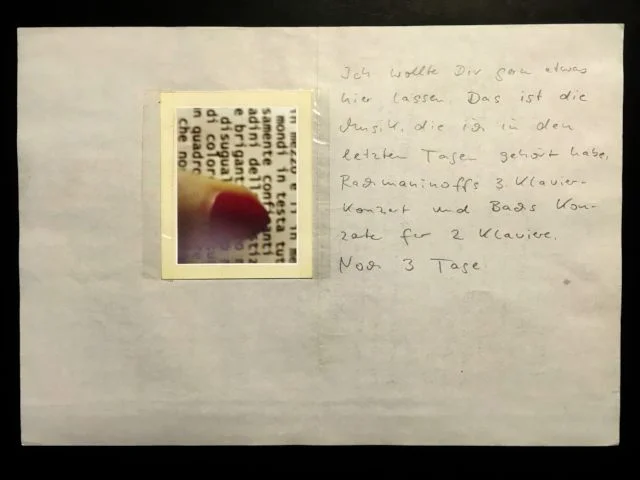 mondi in testa tut
samente
adini
e
disugual
di color
in quadro
che no
Ich wollte Dir gern etwas
hier lassen. Das ist die
Musik, die ich in den
letzten Tagen gehört habe,
Rachmaninoffs 3. Klavier-
konzert und Bachs Kon-
zerte für 2 Klaviere.
Noch 3 Tage.